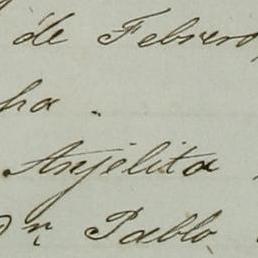 de Febrero
ha.
Anjelita
Dn Pablo